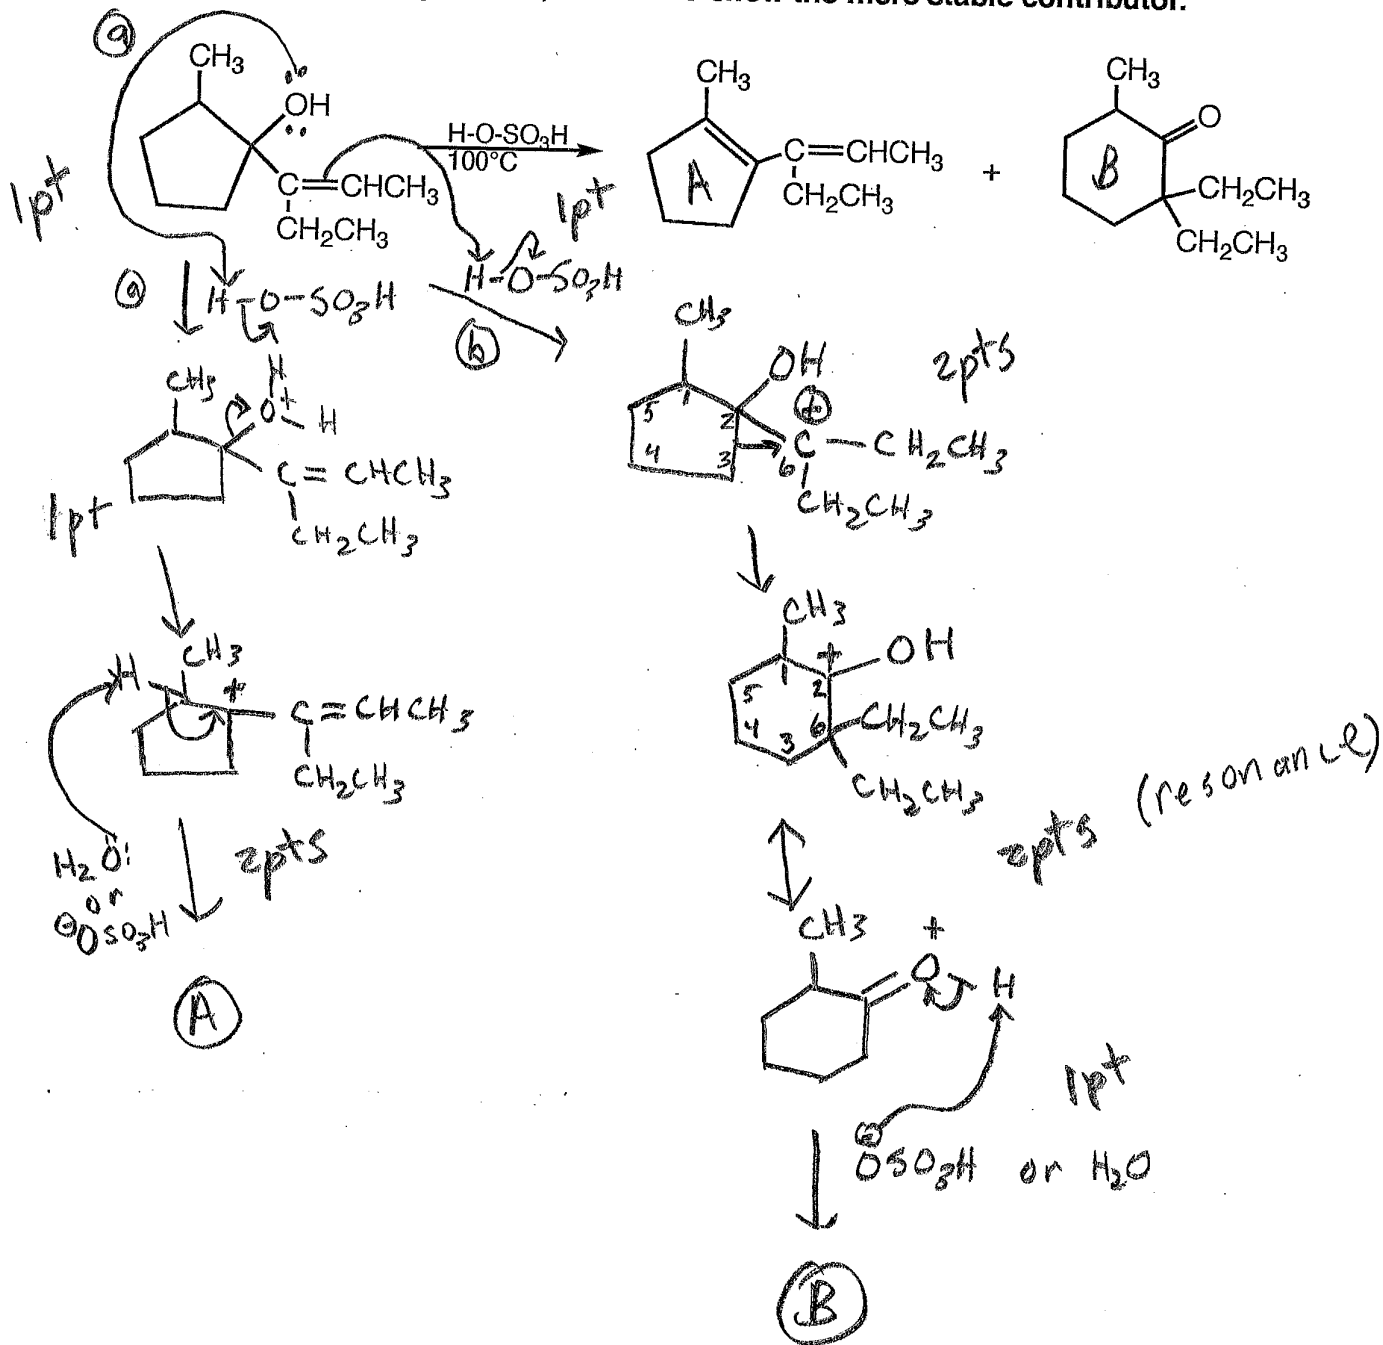 show the more stable contributor.
ⓐ
CH3
OH
C=CHCH3
CH2CH3
H-O-SO3H
100°C
CH3
A
C=CHCH3
CH2CH3
+
CH3
B
O
CH2CH3
CH2CH3
1pt
ⓐ
H-O-SO3H
1pt
H-O-SO3H
ⓑ
CH3
H
O+
H
C=CHCH3
CH2CH3
1pt
CH3
OH
2pts
+
C-CH2CH3
CH2CH3
1
2
3
4
5
6
CH3
H
+
C=CHCH3
CH2CH3
H2O:
or
⊖OSO3H
2pts
Ⓐ
CH3
+
OH
1
2
3
4
5
6
CH2CH3
CH2CH3
2pts (resonance)
CH3
+
O
H
1pt
⊖
OSO3H or H2O
Ⓑ